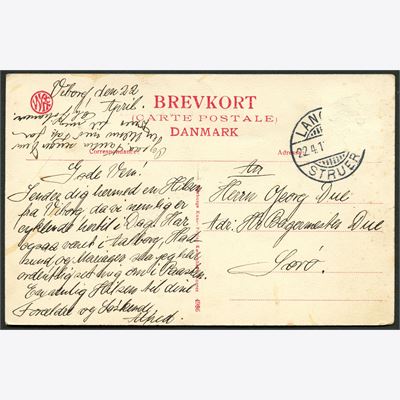 Viborg, den 22
April.
BREVKORT
(CARTE POSTALE)
DANMARK
Correspondance
Adresse
LAN
22.4.1
STRUER
Gode Ven!
Sender dig hermed en Hilsen
fra Viborg, da vi nemlig er
cyklende hertil i Dag. Har
ogsaa været i Aalborg, Had
sund, og Mariager, saa jeg har
ordentlig set mig om i Paasken.
En venlig Hilsen til dine
Forældre og Søskende
Alfred.
Herr Georg Due
Adr: Hr. Bagermester Due
Sorø.